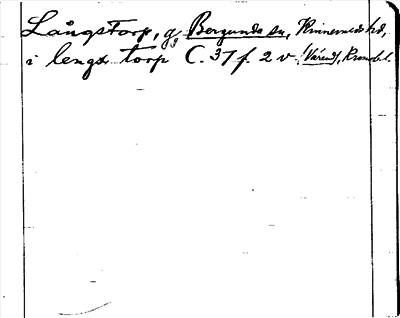 Långstorp, g Bergunda sn, Kinnevalds hd,
i lengx torp C. 37 f. 2 v. (Värend), Kronob. l.